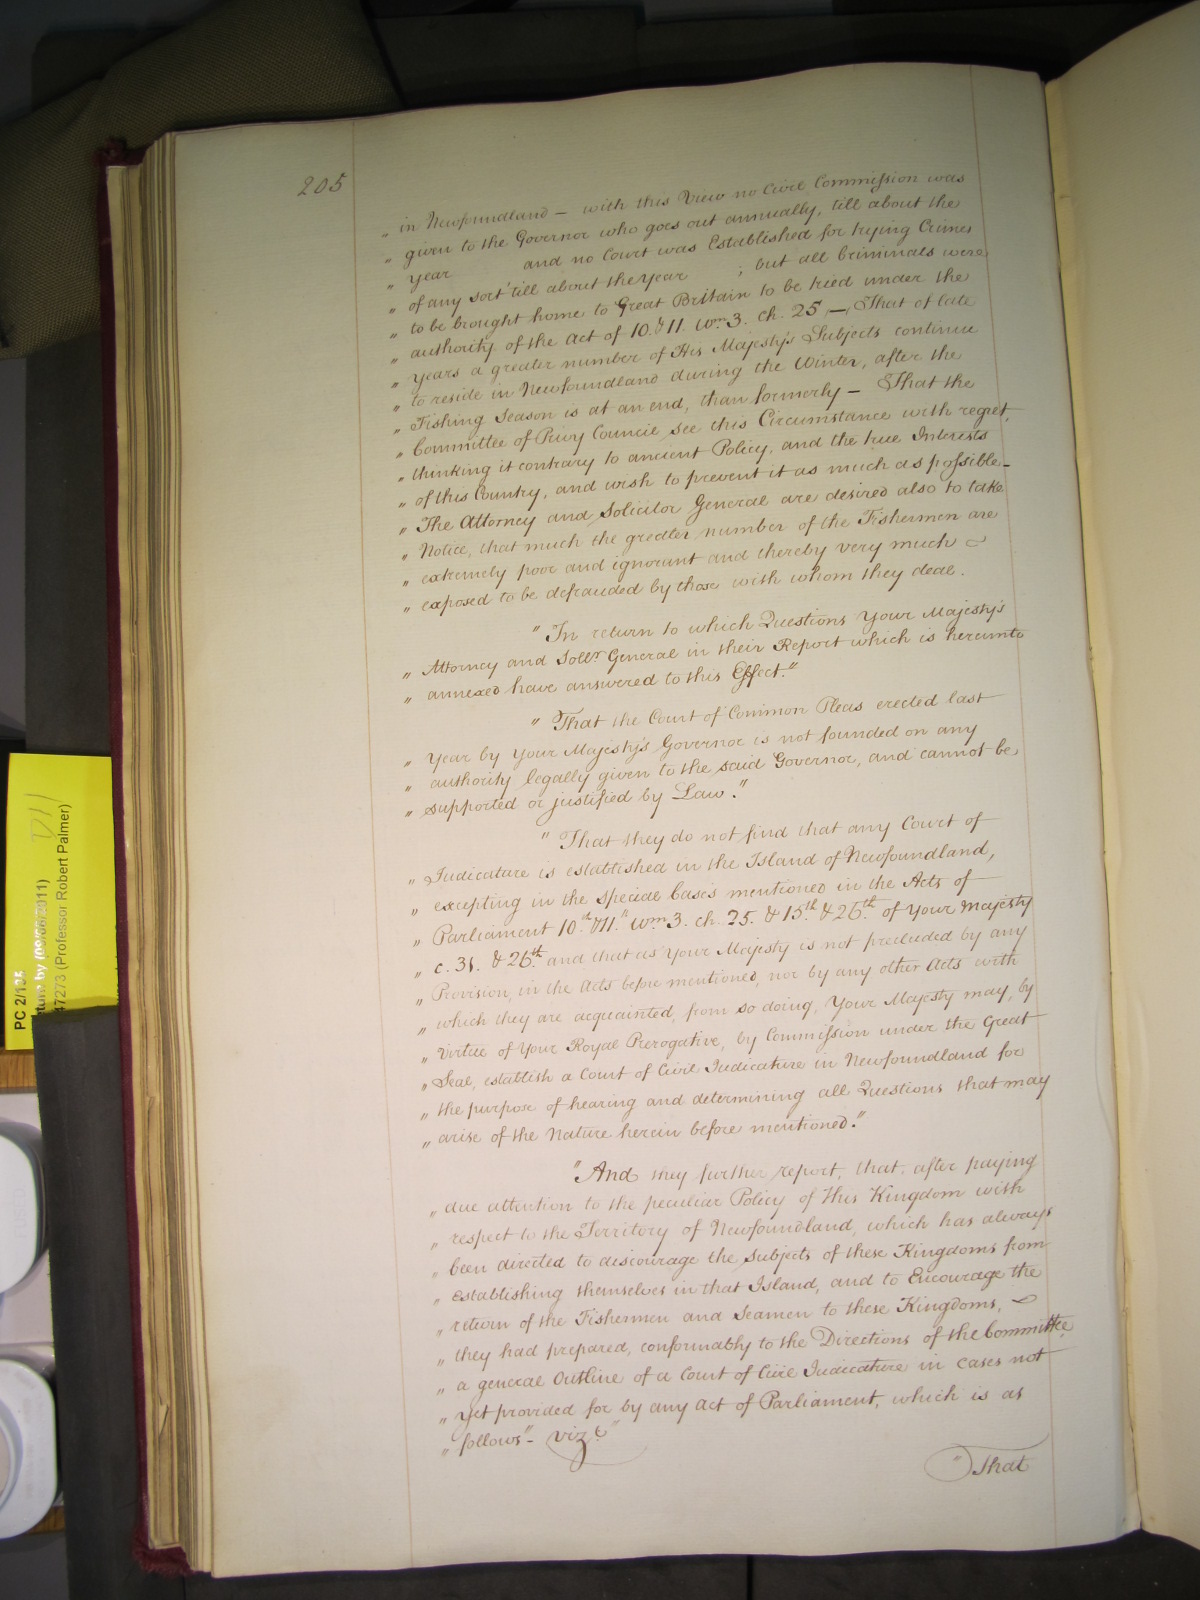 205
„ in Newfoundland — with this View no Civil Commission was
„ given to the Governor who goes out annually, till about the
„ year and no Court was Established for trying Crimes
„ of any sort till about the year ; but all Criminals were
„ to be brought home to Great Britain to be tried under the
„ authority of the Act of 10. & 11. Wm 3. ch. 25 —, That of late
„ years a greater number of His Majesty's Subjects continue
„ to reside in Newfoundland during the Winter, after the
„ Fishing Season is at an end, than formerly — That the
„ Committee of Privy Council see this Circumstance with regret,
„ thinking it contrary to ancient Policy, and the true Interests
„ of this Country, and wish to prevent it as much as possible —
„ The Attorney and Solicitor General are desired also to take
„ Notice, that much the greater number of the Fishermen are
„ extremely poor and ignorant and thereby very much
„ exposed to be defrauded by those with whom they deal.
" In return to which Questions Your Majesty's
„ Attorney and Sollr General in their Report which is hereunto
„ annexed have answered to this Effect."
" That the Court of Common Pleas erected last
„ Year by Your Majesty's Governor is not founded on any
„ authority legally given to the said Governor, and cannot be
„ supported or justified by Law."
" That they do not find that any Court of
„ Judicature is established in the Island of Newfoundland,
„ excepting in the special Cases mentioned in the Acts of
„ Parliament 10.th & 11.th Wm 3. ch. 25. & 15.th & 26.th of Your Majesty
„ c. 31. & 26.th and that as Your Majesty is not precluded by any
„ Provision, in the Acts before mentioned, nor by any other Acts with
„ which they are acquainted, from so doing, Your Majesty may, by
„ virtue of Your Royal Prerogative, by Commission under the Great
„ Seal, establish a Court of Civil Judicature in Newfoundland for
„ the purpose of hearing and determining all Questions that may
„ arise of the Nature herein before mentioned."
" And they further report, that, after paying
„ due attention to the peculiar Policy of this Kingdom with
„ respect to the Territory of Newfoundland, which has always
„ been directed to discourage the Subjects of these Kingdoms from
„ establishing themselves in that Island, and to Encourage the
„ return of the Fishermen and Seamen to these Kingdoms,
„ they had prepared, conformably to the Directions of the Committee,
„ a general Outline of a Court of Civil Judicature in cases not
„ yet provided for by any Act of Parliament, which is as
„ follows" – vizt"
" That
PC 2/135
47273 (Professor Robert Palmer)